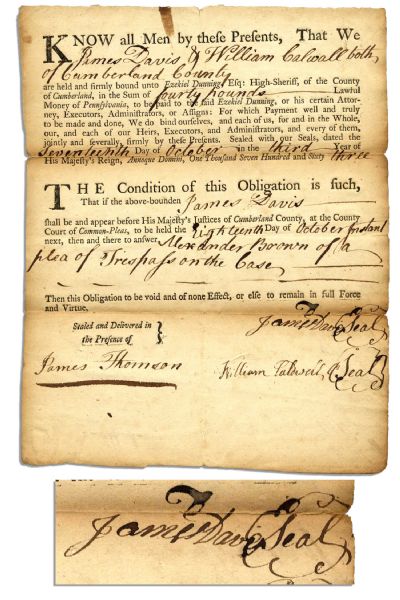 KNOW all Men by these Presents, That We
James Davis & William Calwall both
of Cumberland County
are held and firmly bound unto Ezekiel Dunning, Esq: High-Sheriff, of the County
of Cumberland, in the Sum of fourty pounds Lawful
Money of Pennsylvania, to be paid to the said Ezekiel Dunning, or his certain Attor-
ney, Executors, Administrators, or Assigns: For which Payment well and truly
to be made and done, We do bind ourselves, and each of us, for and in the Whole,
our, and each of our Heirs, Executors, and Administrators, and every of them,
jointly and severally, firmly by these Presents. Sealed with our Seals, dated the
Seventeenth Day of October in the third Year of
His Majesty's Reign, Annoque Domini, One Thousand Seven Hundred and Sixty three
THE Condition of this Obligation is such,
That if the above-bounden James Davis
shall be and appear before His Majesty's Justices of Cumberland County, at the County
Court of Common-Pleas, to be holden the Eighteenth Day of October Instant
next, then and there to answer Alexander Brown of a
plea of Trespass on the Case
Then this Obligation to be void and of none Effect, or else to remain in full Force
and Virtue.
Sealed and Delivered in
the Presence of
James Davis Seal
James Thomson
William Seal
James Davis Seal